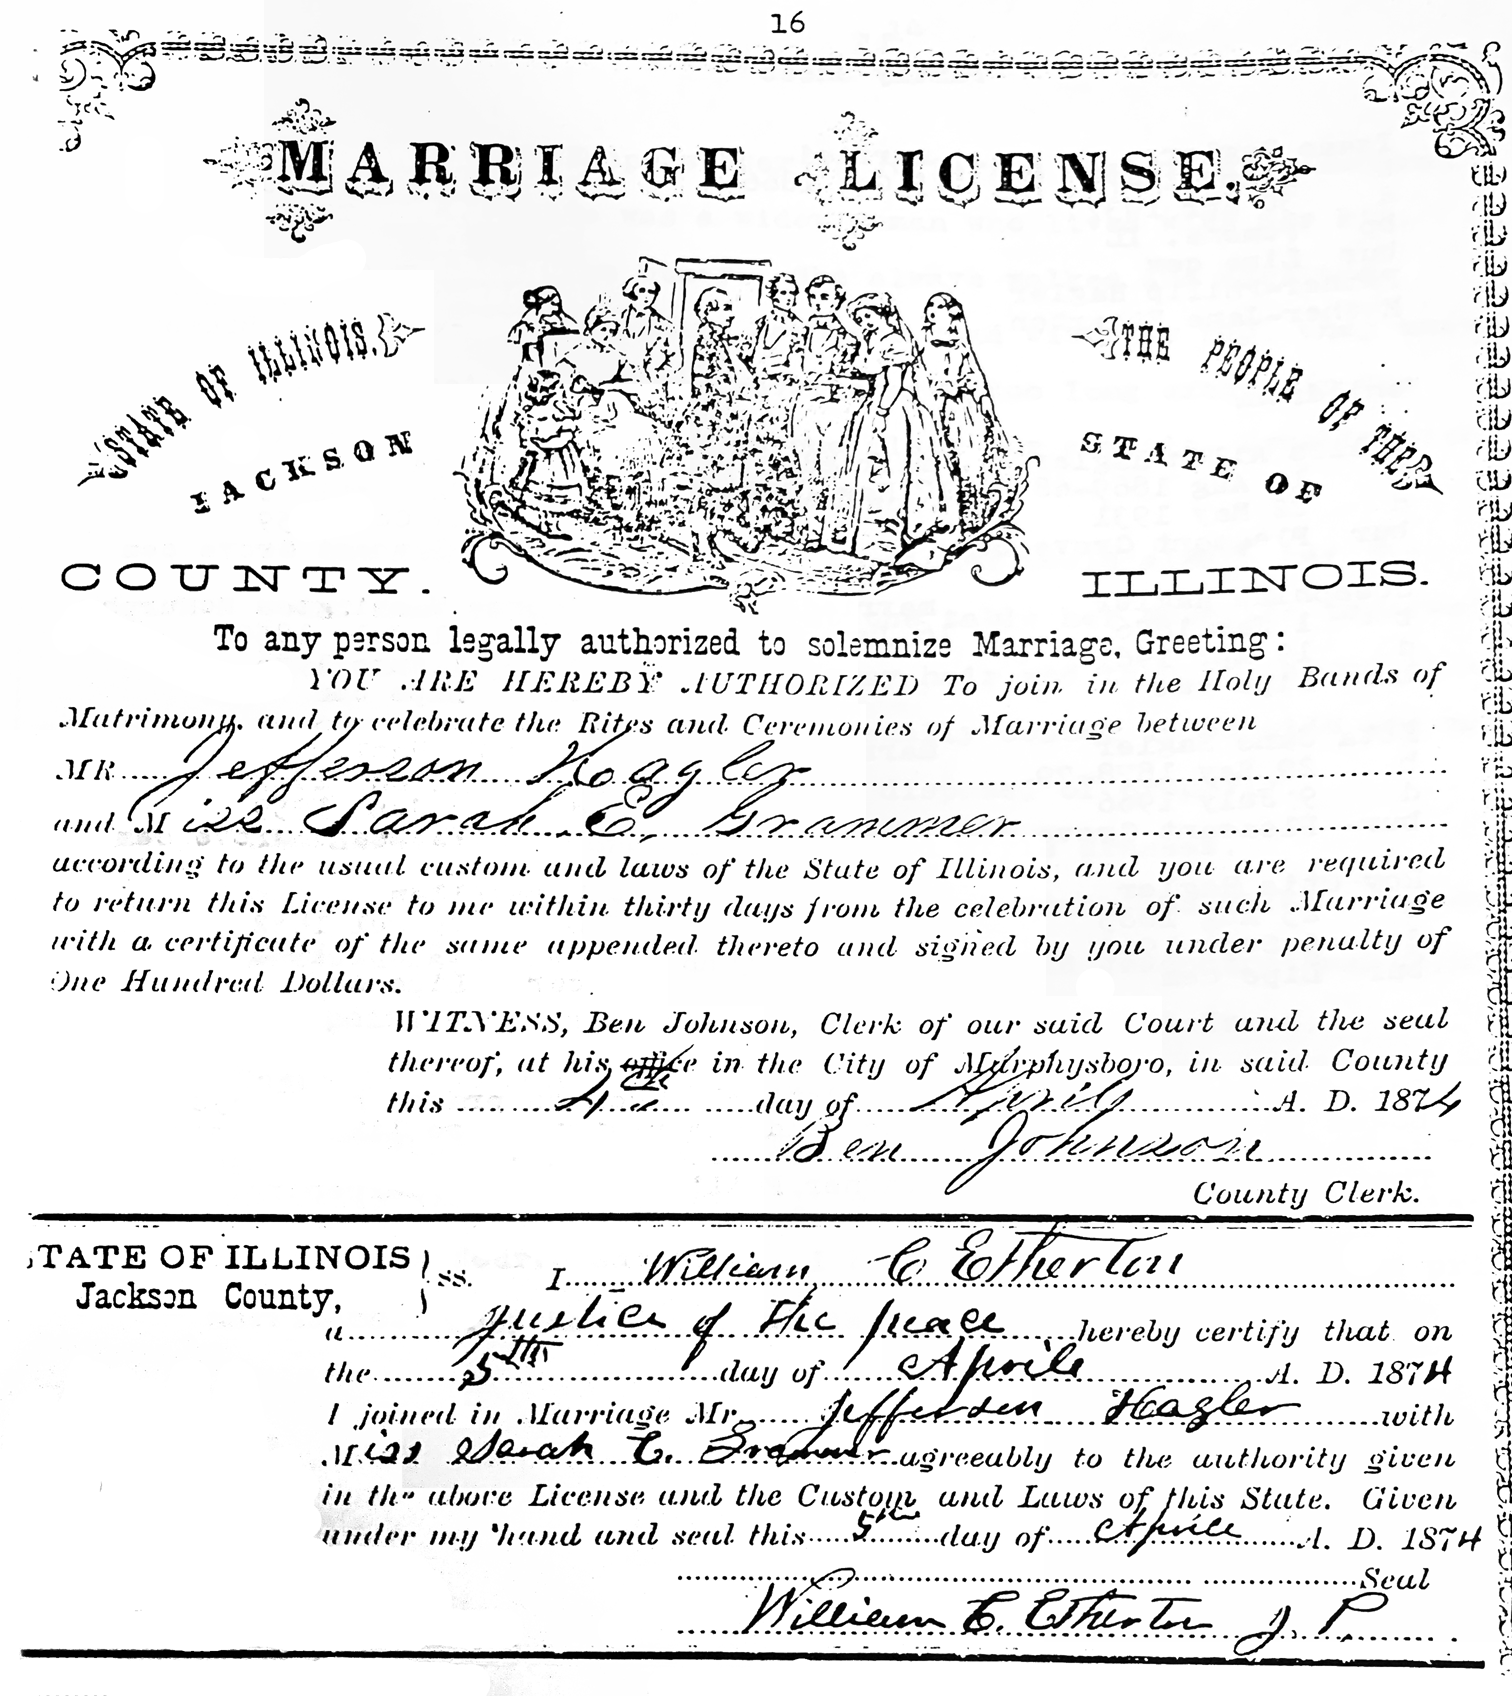 16
MARRIAGE LICENSE.
STATE OF ILLINOIS.
JACKSON
COUNTY.
THE PEOPLE OF THE
STATE OF
ILLINOIS.
To any person legally authorized to solemnize Marriage, Greeting:
YOU ARE HEREBY AUTHORIZED To join in the Holy Bands of
Matrimony, and to celebrate the Rites and Ceremonies of Marriage between
MR Jefferson Hagler
and Miss Sarah E. Grammer
according to the usual custom and laws of the State of Illinois, and you are required
to return this License to me within thirty days from the celebration of such Marriage
with a certificate of the same appended thereto and signed by you under penalty of
One Hundred Dollars.
WITNESS, Ben Johnson, Clerk of our said Court and the seal
thereof, at his office in the City of Murphysboro, in said County
this 4th day of April A. D. 1874
Ben Johnson
County Clerk.
STATE OF ILLINOIS
Jackson County,
ss. I William C Etherton
a justice of the peace hereby certify that on
the 5th day of Aprile A. D. 1874
I joined in Marriage Mr. Jefferson Hagler with
Miss Sarah E. Grammer agreeably to the authority given
in the above License and the Custom and Laws of this State. Given
under my hand and seal this 5th day of Aprile A. D. 1874
Seal
William C. Etherton J. P.